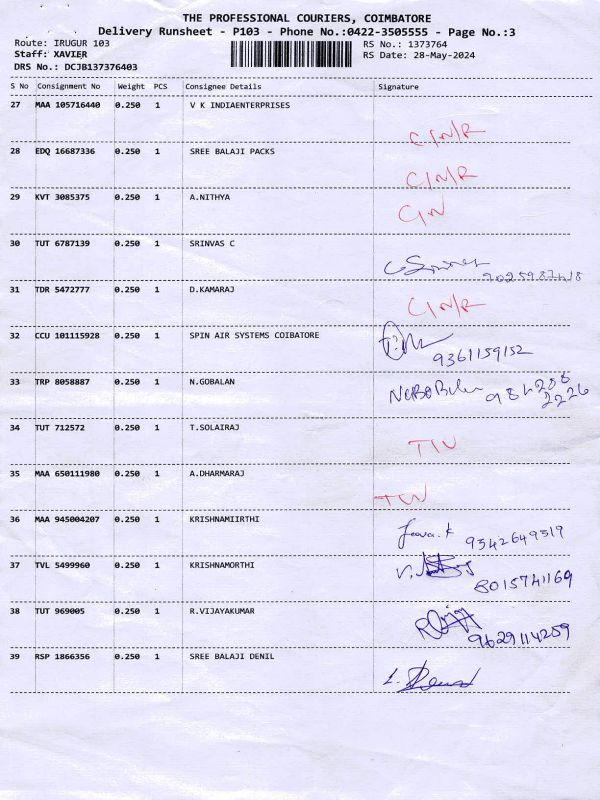 THE PROFESSIONAL COURIERS, COIMBATORE
Delivery Runsheet - P103 - Phone No.:0422-3505555 - Page No.:3
Route: IRUGUR 103
RS No.: 1373764
Staff: XAVIER
RS Date: 28-May-2024
DRS No.: DCJB137376403
S No Consignment No Weight PCS Consignee Details Signature
27 MAA 105716440 0.250 1 V K INDIAENTERPRISES
C/N/R
28 EDQ 16687336 0.250 1 SREE BALAJI PACKS
C/N/R
29 KVT 3085375 0.250 1 A.NITHYA
C/N
30 TUT 6787139 0.250 1 SRINVAS C
31 TDR 5472777 0.250 1 D.KAMARAJ
C/N/R
32 CCU 101115928 0.250 1 SPIN AIR SYSTEMS COIBATORE
9361159152
33 TRP 8058887 0.250 1 N.GOBALAN
2226
34 TUT 712572 0.250 1 T.SOLAIRAJ
35 MAA 650111980 0.250 1 A.DHARMARAJ
36 MAA 945004207 0.250 1 KRISHNAMIIRTHI
9342649319
37 TVL 5499960 0.250 1 KRISHNAMORTHI
8015741169
38 TUT 969005 0.250 1 R.VIJAYAKUMAR
9629114259
39 RSP 1866356 0.250 1 SREE BALAJI DENIL